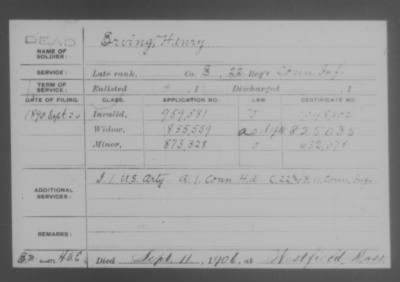 DEAD
NAME OF SOLDIER: Erving, Henry
SERVICE: Late rank, Co. B, 22 Reg't Conn Inf.
TERM OF SERVICE: Enlisted , 1 Discharged , 1
DATE OF FILING. CLASS. APPLICATION NO. LAW. CERTIFICATE NO.
1890 Sept. Invalid, 959,581
Widow, 855,559 825035
Minor, 873,328 632,078
ADDITIONAL SERVICES: I. 1 U.S. Arty A. 1. Conn H.A.
REMARKS:
Died Sept. 11, 1906, at Westfield, Mass.